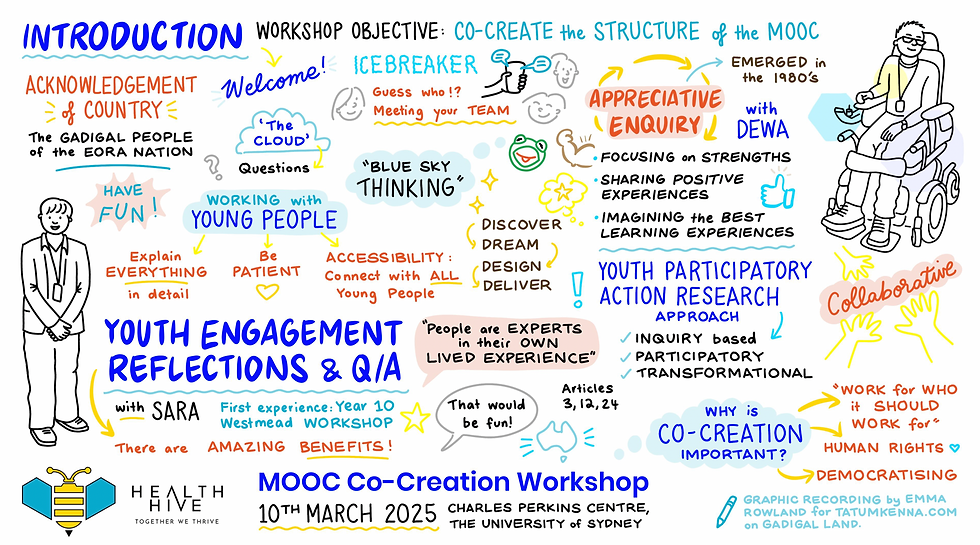 INTRODUCTION
WORKSHOP OBJECTIVE: CO-CREATE the STRUCTURE of the MOOC
ACKNOWLEDGEMENT
of COUNTRY
The GADIGAL PEOPLE
of the EORA NATION
Welcome!
'The
CLOUD'
Questions
?
ICEBREAKER
Guess who!?
Meeting your TEAM
"BLUE SKY
THINKING"
APPRECIATIVE
ENQUIRY
EMERGED in
the 1980's
with
DEWA
• FOCUSING on STRENGTHS
• SHARING POSITIVE
EXPERIENCES
• IMAGINING the BEST
LEARNING EXPERIENCES
HAVE
FUN!
WORKING with
YOUNG PEOPLE
Explain
EVERYTHING
in detail
Be
PATIENT
ACCESSIBILITY:
Connect with ALL
Young People
DISCOVER
DREAM
DESIGN
DELIVER
!
YOUTH PARTICIPATORY
ACTION RESEARCH
APPROACH
✓ INQUIRY based
✓ PARTICIPATORY
✓ TRANSFORMATIONAL
Collaborative
YOUTH ENGAGEMENT
REFLECTIONS & Q/A
"People are EXPERTS
in their OWN
LIVED EXPERIENCE"
with SARA
First experience: Year 10
Westmead WORKSHOP
There are AMAZING BENEFITS!
That would
be fun!
Articles
3, 12, 24
WHY is
CO-CREATION
IMPORTANT?
"WORK for WHO
it SHOULD
WORK for"
HUMAN RIGHTS
DEMOCRATISING
HEALTH
HIVE
TOGETHER WE THRIVE
MOOC Co-Creation Workshop
10TH MARCH 2025
CHARLES PERKINS CENTRE,
THE UNIVERSITY of SYDNEY
GRAPHIC RECORDING by EMMA
ROWLAND for TATUMKENNA.COM
on GADIGAL LAND.